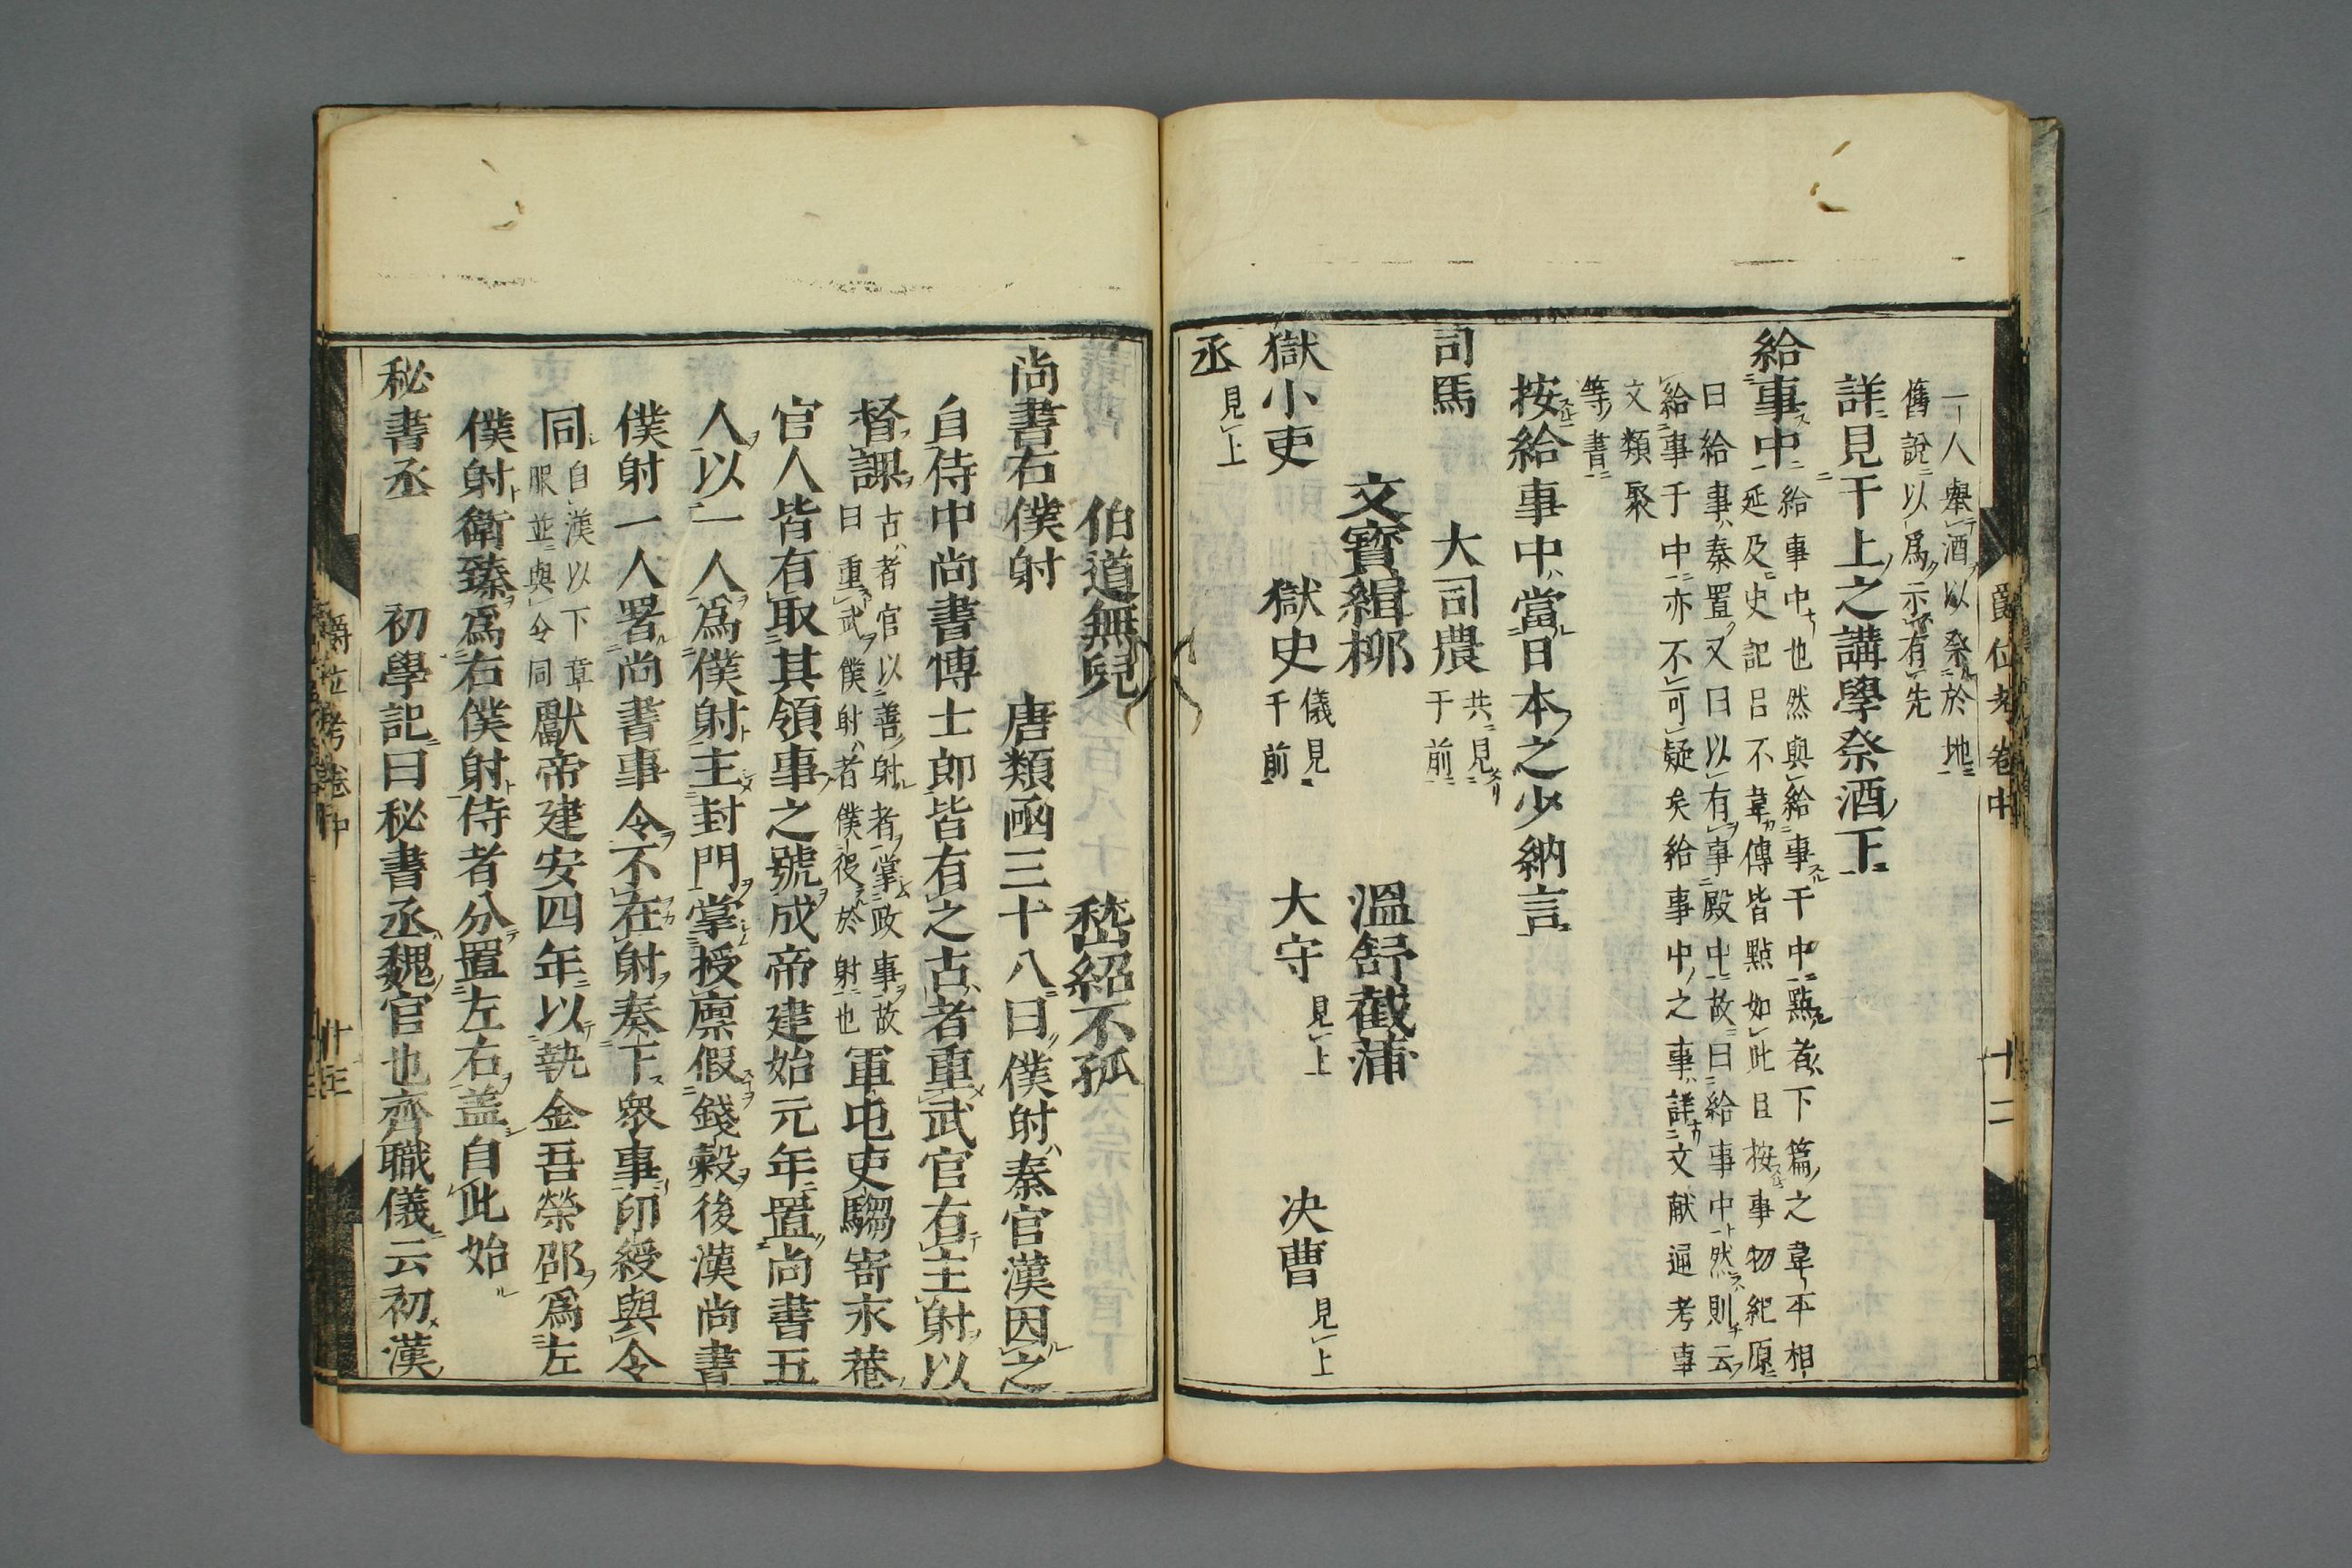 一人舉酒以祭於地
舊說以爲示有先
詳見于上之講學祭酒下
給事中
給事中也然與給事于中點者下篇之韋平相
延及史記呂不韋傳皆點如此且按事物紀原
曰給事秦置又曰以有事殿中故曰給事中然則云
給事于中亦不可疑矣給事中之事詳文献通考事
文類聚
等書
按給事中當日本之少納言
司馬 大司農 共見于前
文寶緝柳 溫舒截蒲
獄小吏 獄史 儀見于前 大守 見上 决曹 見上
丞 見上
爵位考卷中 十二
伯道無兒 嵇紹不孤
尚書右僕射 唐類函三十八曰僕射秦官漢因之
自侍中尚書博士郎皆有之古者重武官有主射以
督課 古者官以善射者掌政事故曰重武僕射者僕役於射也 軍屯吏騶宰永巷
官人皆有取其領事之號成帝建始元年置尚書五
人以一人爲僕射主封門掌授廩假錢穀後漢尚書
僕射一人署尚書事令不在射奏下衆事印綬與令
同 自漢以下章服並與令同 獻帝建安四年以執金吾榮邵爲左
僕射衛臻爲右僕射侍者分置左右盖自此始
秘書丞 初學記曰秘書丞魏官也齊職儀云初漢
爵位考卷中 十三